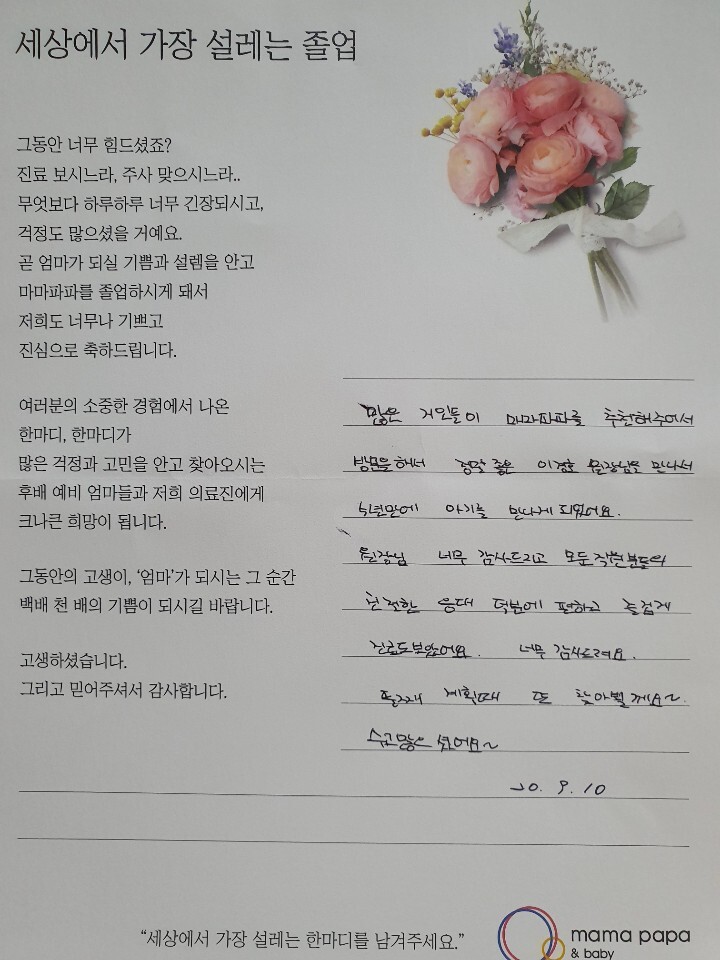 세상에서 가장 설레는 졸업
그동안 너무 힘드셨죠?
진료 보시느라, 주사 맞으시느라..
무엇보다 하루하루 너무 긴장되시고,
걱정도 많으셨을 거예요.
곧 엄마가 되실 기쁨과 설렘을 안고
마마파파를 졸업하시게 돼서
저희도 너무나 기쁘고
진심으로 축하드립니다.
여러분의 소중한 경험에서 나온
한마디, 한마디가
많은 걱정과 고민을 안고 찾아오시는
후배 예비 엄마들과 저희 의료진에게
크나큰 희망이 됩니다.
그동안의 고생이, '엄마'가 되시는 그 순간
백배 천 배의 기쁨이 되시길 바랍니다.
고생하셨습니다.
그리고 믿어주셔서 감사합니다.
많은 지인들이 마마파파를 추천해주어서
방문을해서 정말 좋은 원장님을 만나서
식년만에 아기를 만나게 되었어요.
원장님 너무 감사드리고 모든직원분들의
친절한 응대 덕분에 편하고 즐겁게
진료도보았어요. 너무 감사드려요.
둘째 계획때 또 찾아뵐께요~
수고많으셨어요~
20. 9. 10
"세상에서 가장 설레는 한마디를 남겨주세요."
mama papa
& baby